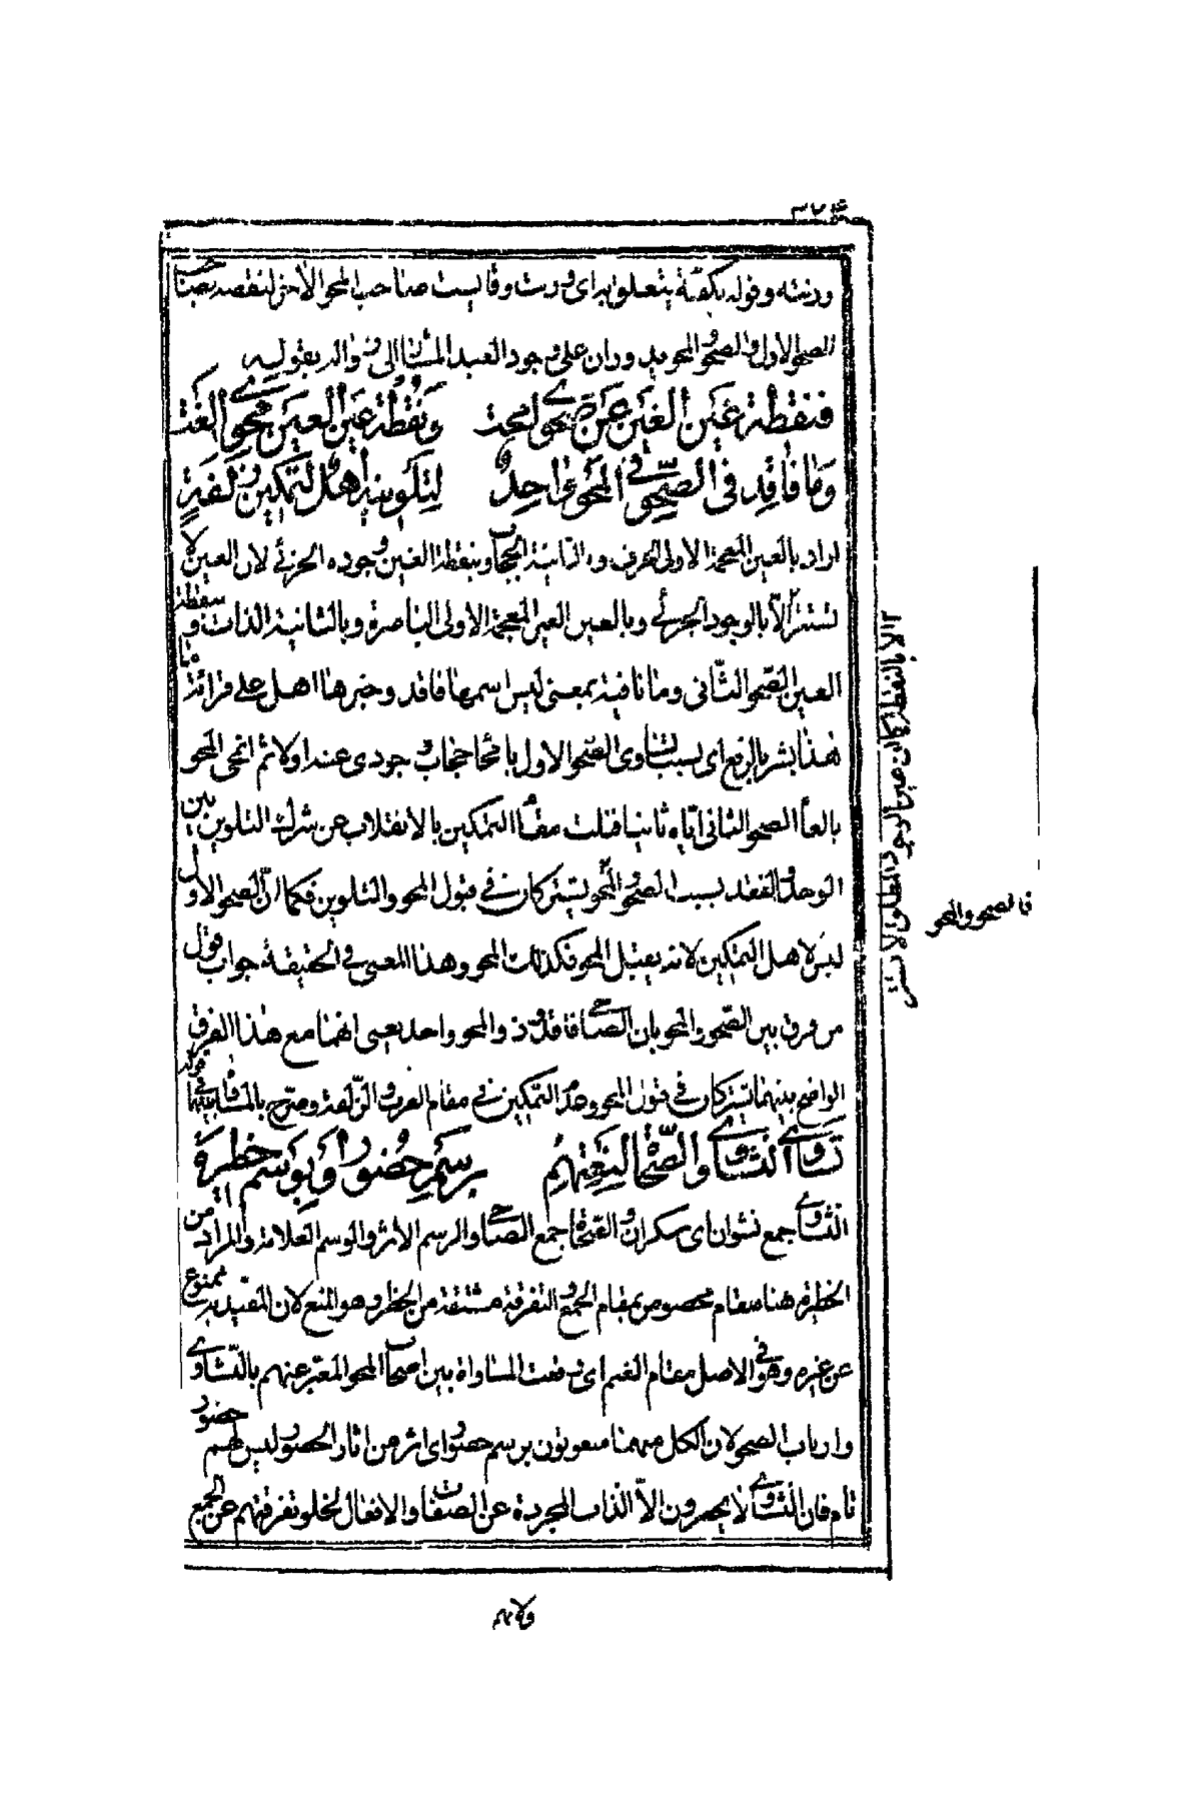 وزنته وقوله بكفة يتعلق به اى وزنت وقايست صاحب المحو الاخر لنقصه بصاحب
الصحو الاول والصحو والمحو يدوران على وجود العبد المشار اليه بقوله
فنقطة غين الغين عن صحوى انمحت ونقطة عين العين محوى الغت
وما فاقد فى الصحو فى المحو واحد لتلوينه اهل لتمكين زلفة
اراد بالعين المعجمة الاولى الحرف والثانية الحجاب وبنقطة الغين وجوده الجزئى لان العين لا
تستتر الا بالوجود الجزئى وبالعين الغير المعجمة الاولى الباصرة وبالثانية الذات وبنقطة
العين الصحو الثانى وما نافية بمعنى ليس اسمها فاقد وخبرها اهل على قرائة ما
هذا بشر بالرفع اى بسبب تساوى الصحو الاول بانمحاء حجاب وجودى عنه اولا ثم انمحى المحو
بالغاء الصحو الثانى اياه ثانيا فنلت مقام التمكين بالانفلات عن شرك التلوين بين
الوجد والفقد بسبب الصحو والمحو يشتركان فى قبول المحو والتلوين فكما ان الصحو الاول
ليس لاهل التمكين لانه يقبل المحو فكذلك المحو وهذا المعنى فى الحقيقة جواب قول
من فرق بين الصحو والمحو بان الصاحى فاقد وذو المحو واجد يعنى انهما مع هذا الفرق
الواضح بينهما يشتركان فى قبول المحو وعدم التمكين فى مقام القرب والزلفة وصرح بالمساواة بينهما
تساوى النشاوى والصحاة لنعتهم برسم حضور او بوسم حظيرة
النشاوى جمع نشوان اى سكران والصحاة جمع الصاحى والرسم الاثر والوسم العلامة والمراد من
الحظيرة هنا مقام مخصوص بمقام الجمع والتفرقة مشتقة من الحظر وهو المنع لان المقيد به ممنوع
عن غيره وهو فى الاصل مقام الغنم اى وقعت المساواة بين اصحاب المحو المعبر عنهم بالنشاوى
وارباب الصحو لان الكل منهما منعوتون برسم حضور اى اثر من اثار الحضور ليس لهم حضور
تام فان النشاوى لا يحضرون الا الذات المجردة عن الصفات والافعال لخلو تفرقتهم عن الجمع
فالصحو والمحو